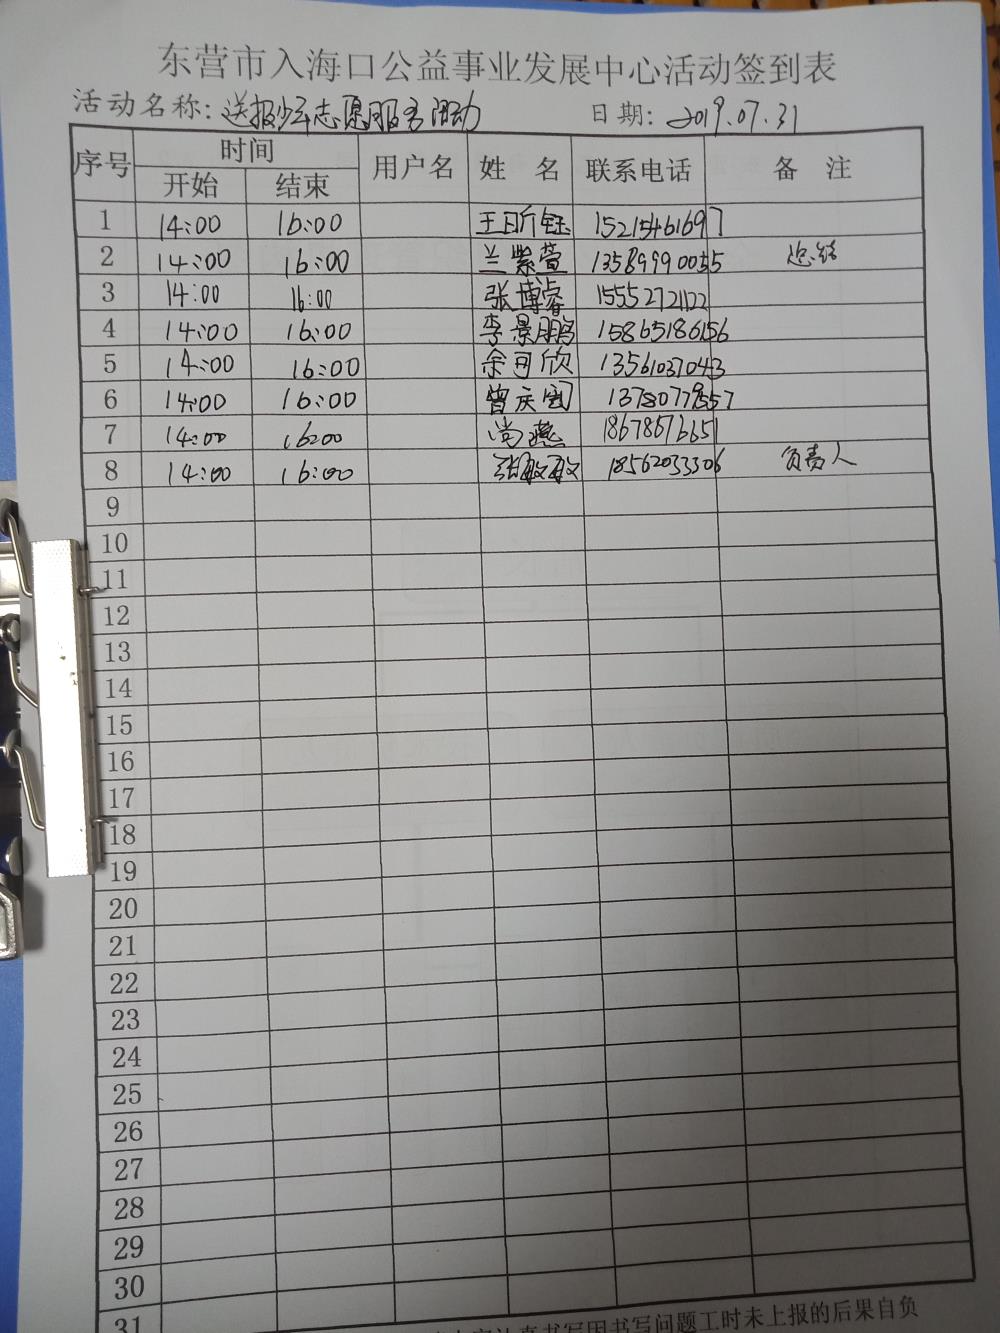 东营市入海口公益事业发展中心活动签到表
活动名称：送报少年志愿服务活动 日期：2019.07.31
序号 时间 用户名 姓 名 联系电话 备 注
开始 结束
1 14:00 16:00 王昕钰 15215461697
2 14:00 16:00 兰紫萱 13589990055 总结
3 14:00 16:00 张博睿 15552721122
4 14:00 16:00 李景鹏 15865186156
5 14:00 16:00 余可欣 13561037043
6 14:00 16:00 曾庆 13780779557
7 14:00 16:00 尚燕 18678676651
8 14:00 16:00 张敏敏 18562033306 负责人
9
10
11
12
13
14
15
16
17
18
19
20
21
22
23
24
25
26
27
28
29
30
31
书写因书写问题工时未上报的后果自负